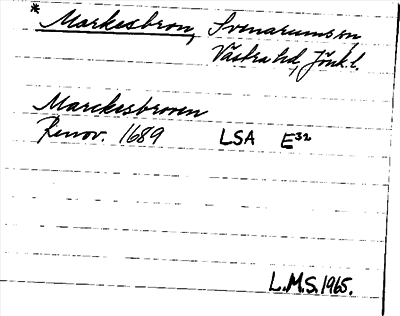 * Markesbron, Svenarums sn,
Västra hd, Jönk. l.
Marckesbroen
Renov. 1689 LSA E³²
L.M.S. 1965.